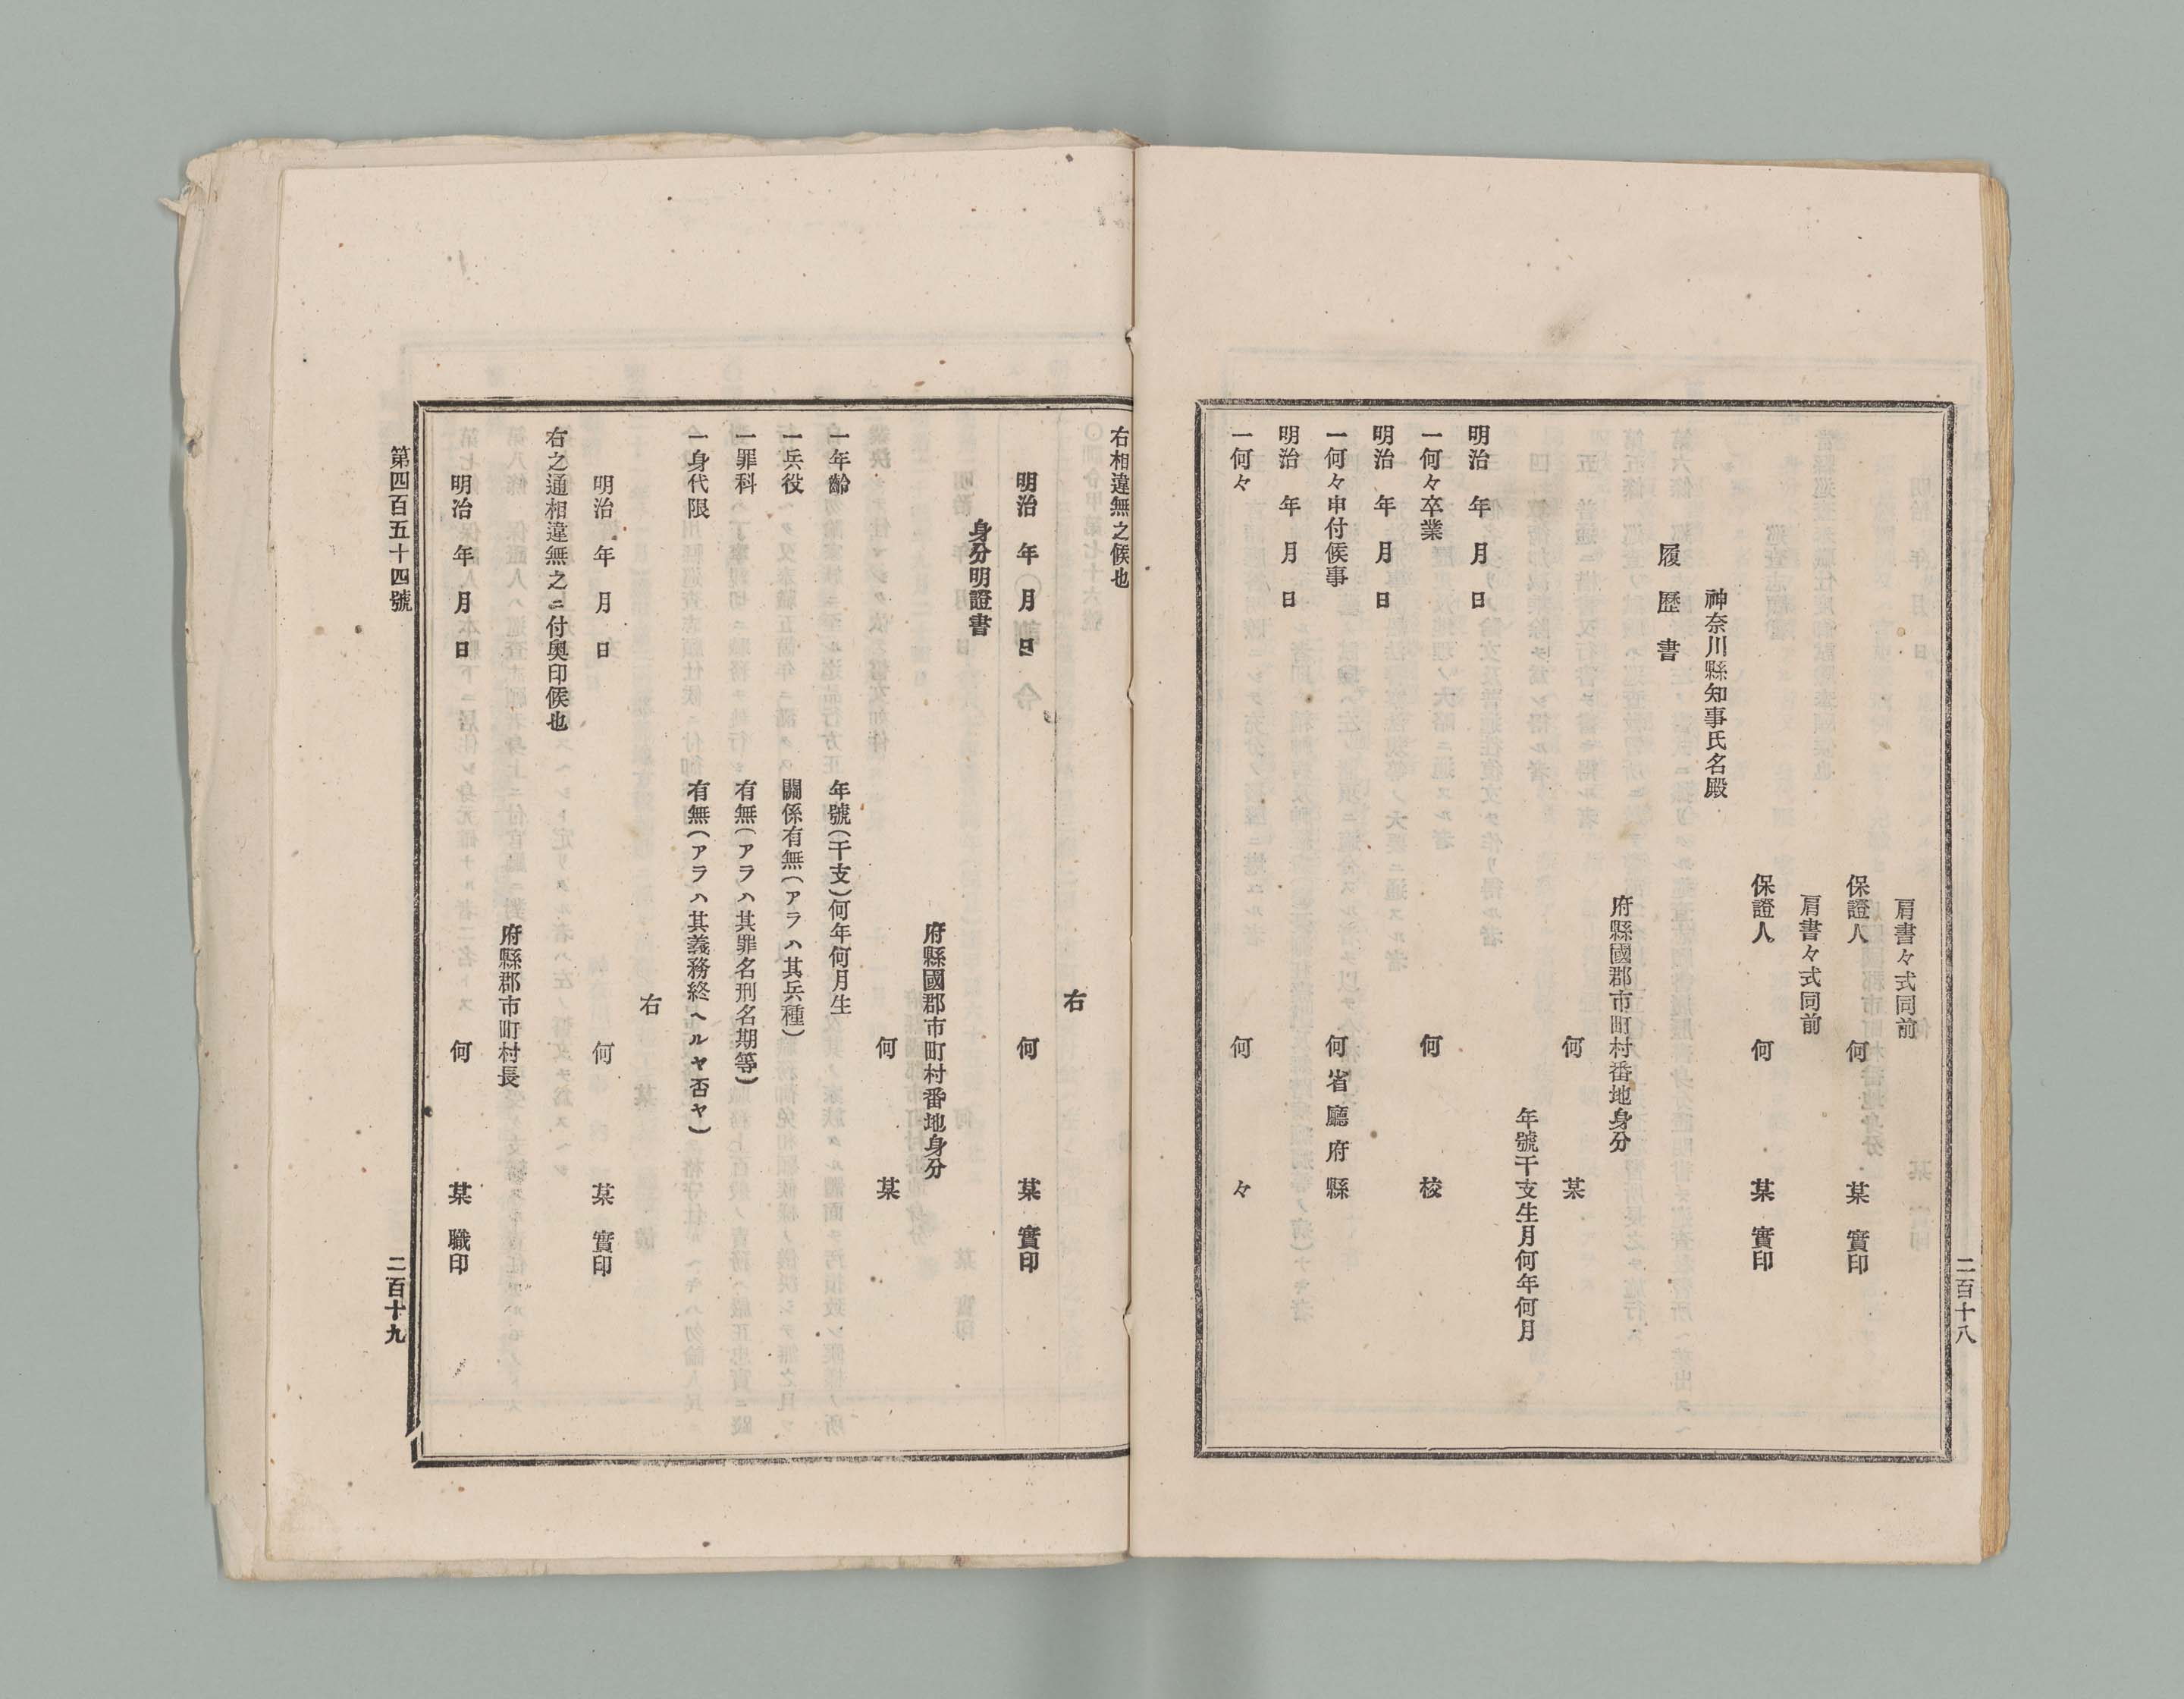 肩書々式同前
保證人　何　某　實印
肩書々式同前
保證人　何　某　實印
神奈川縣知事氏名殿
履歷書
府縣國郡市町村番地身分
何　某
年號干支生月何年何月
明治　年　月　日
一何々卒業　何　校
明治　年　月　日
一何々申付候事　何省廳府縣
明治　年　月　日
一何々　何　々
二百十八
右相違無之候也
右
明治　年　月　日　何　某　實印
身分明證書
府縣國郡市町村番地身分
何　某
一年齡　年號(干支)何年何月生
一兵役　關係有無(アラハ其兵種)
一罪科　有無(アラハ其罪名刑名期等)
一身代限　有無(アラハ其義務終ヘルヤ否ヤ)
右
明治　年　月　日　何　某　實印
右之通相違無之ニ付奧印候也
府縣郡市町村長
明治　年　月　日　何　某　職印
第四百五十四號
二百十九